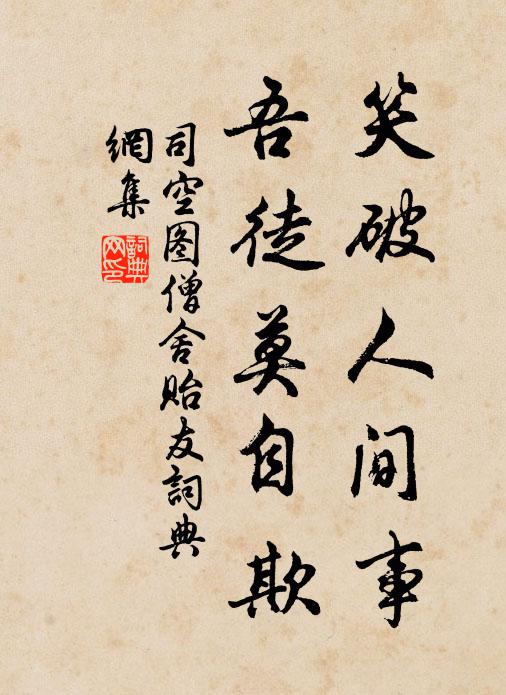 笑破人间事
吾徒莫自欺
司空图僧舍贻友詞典
網集
詞典
网印